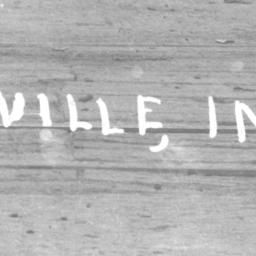 VILLE, IN